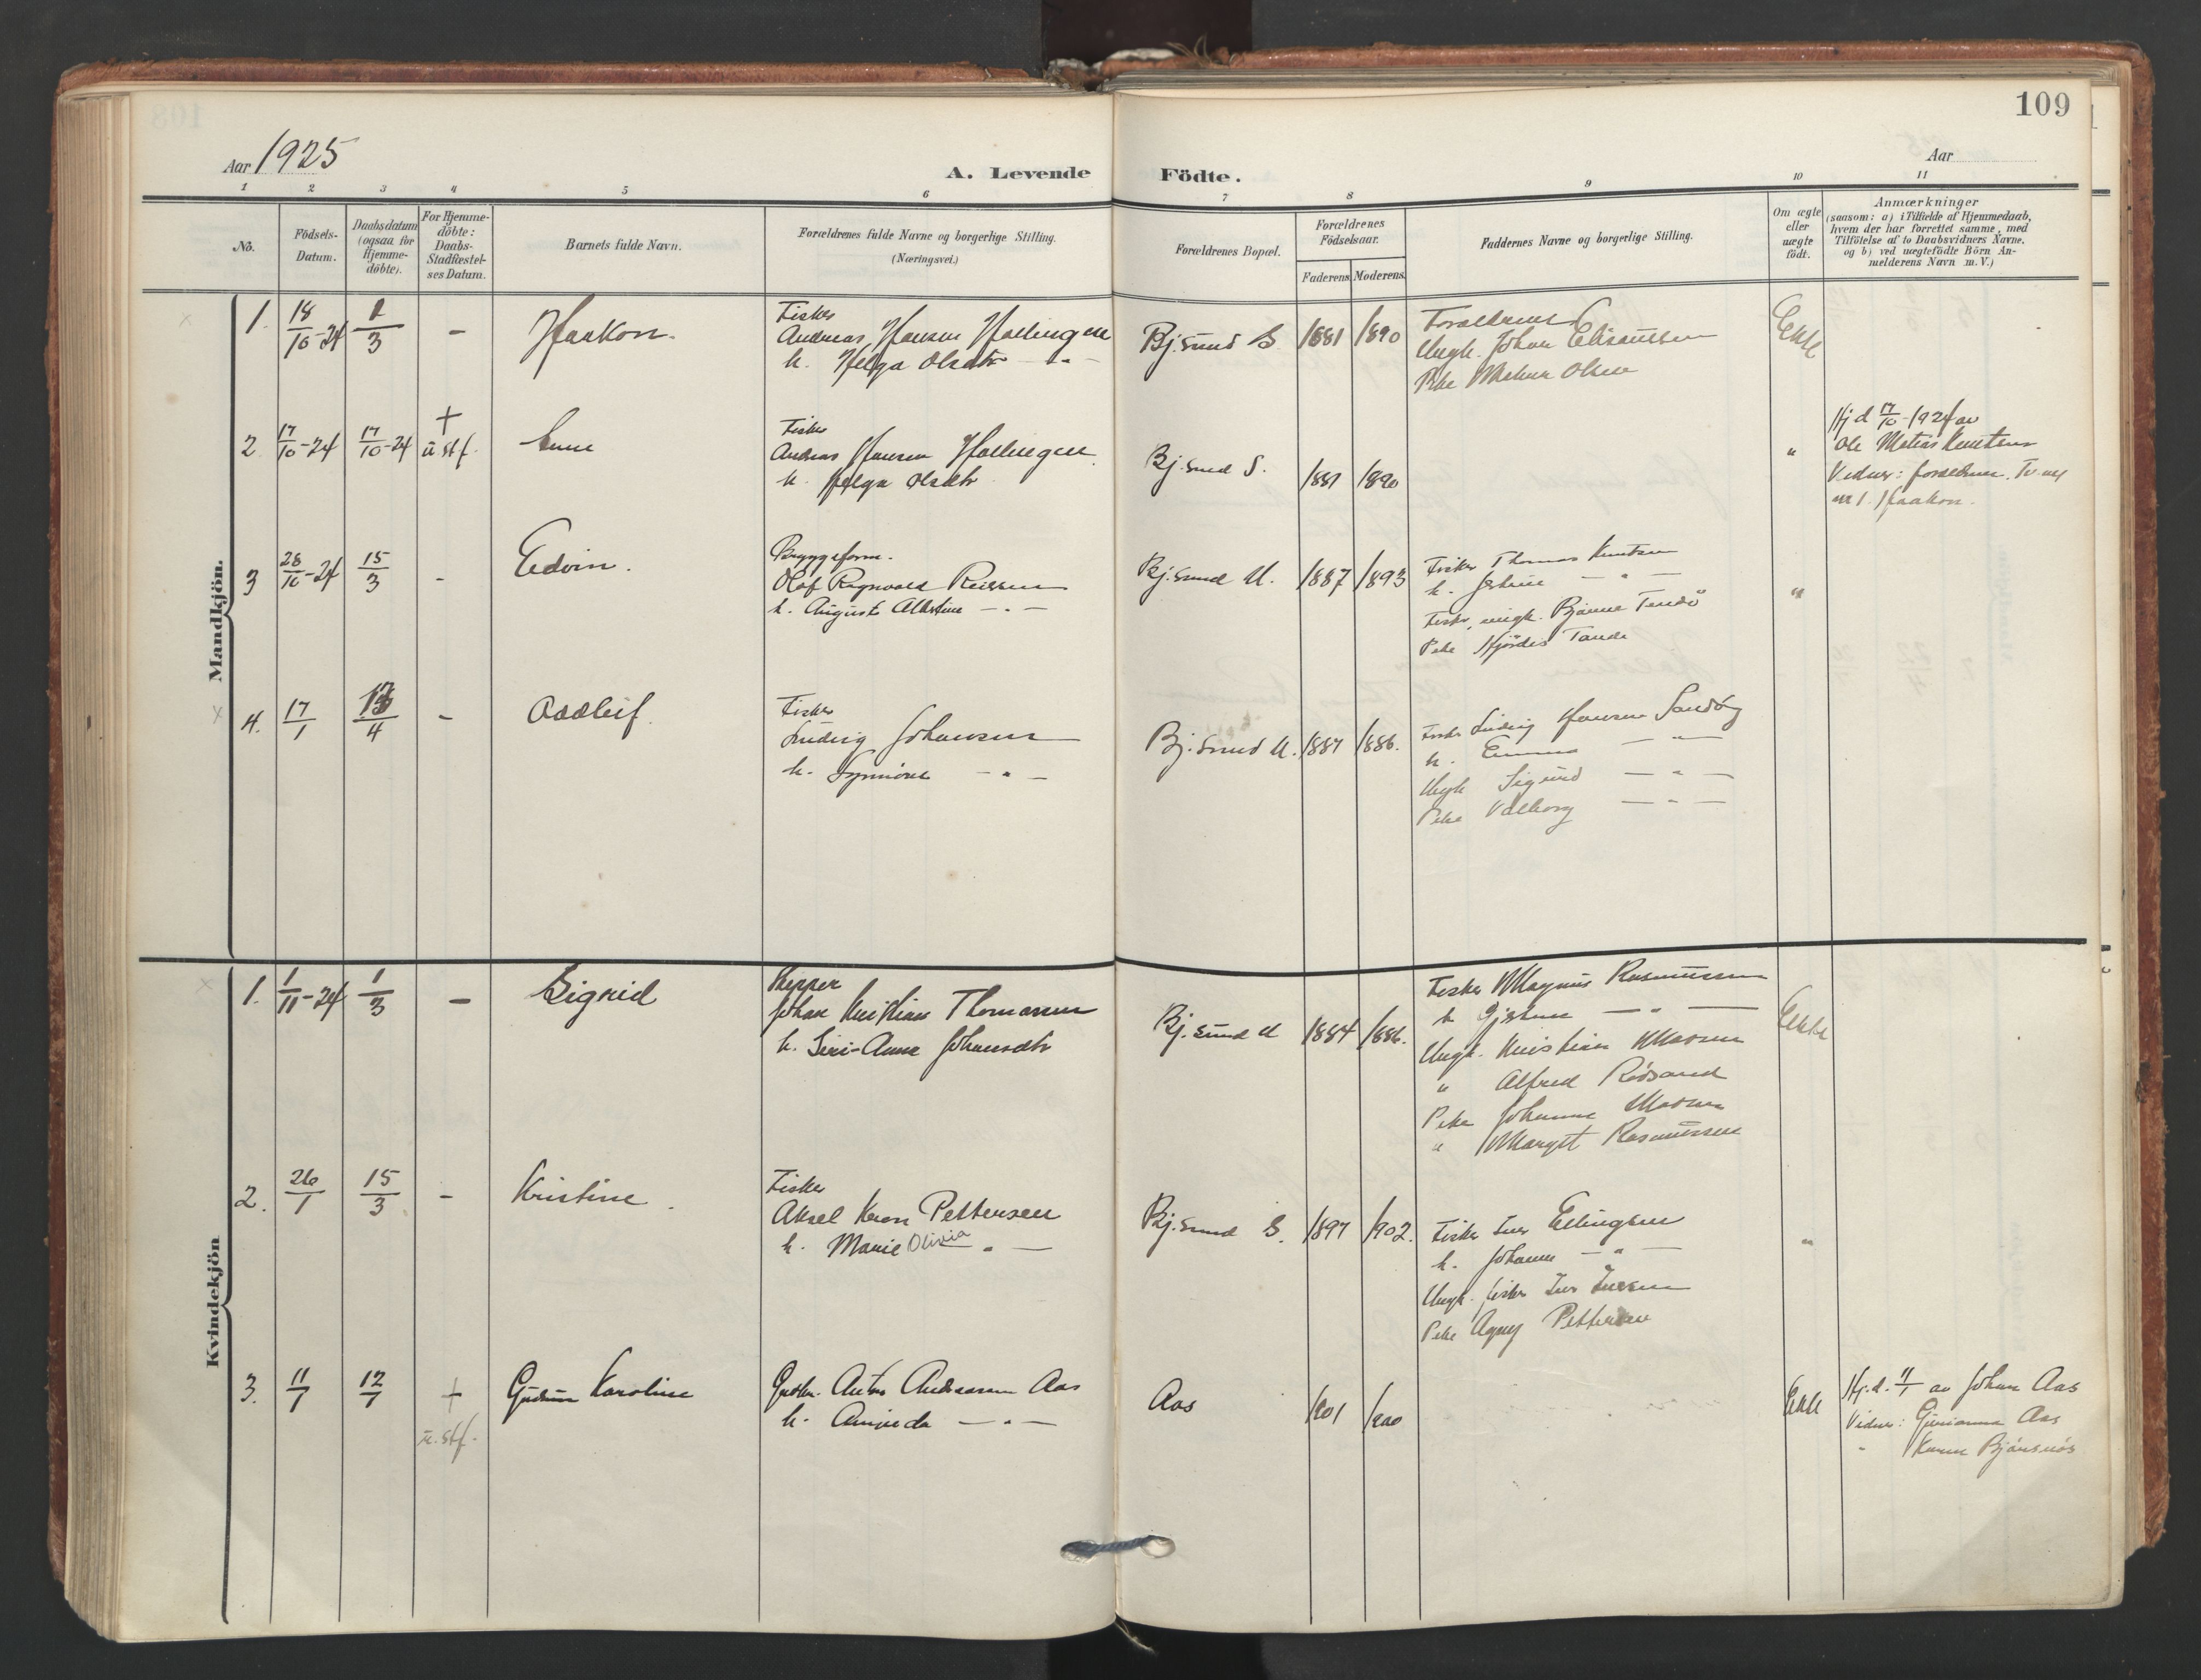 109
Aar 1925
A. Levende Födte.
Aar
1 2 3 4 5 6 7 8 9 10 11
No.
Födsels-
Datum.
Daabsdatum
(ogsaa for
Hjemme-
döbte).
For Hjemme-
döbte:
Daabs-
Stadfæstel-
ses Datum.
Barnets fulde Navn.
Forældrenes fulde Navne og borgerlige Stilling.
(Næringsvei.)
Forældrenes Bopæl.
Forældrenes
Födselsaar.
Faderens Moderens.
Faddernes Navne og borgerlige Stilling.
Om ægte
eller
uægte
födt.
Anmærkninger
(saasom: a) i Tilfælde af Hjemmedaab,
hvem der har forrettet samme, med
Tilföielse af to Daabsvidners Navne,
og b) ved uægtefödte Börn An-
melderens Navn m. V.)
Mandkjön.
1. 18/10-24 1/3 - Haakon.
Fisker
Andreas Hansen Hallingen
h. Helga Olsdtr - " -
Bj.sund S 1881 1890
Forældrene
Ungk. Johan
Pike Olsen
Ekte
2 17/10-24 17/10-24 + u stf.
Fisker
Andreas Hansen Hallingen
h. Helga Olsdtr
Bj.sund S. 1881 1890
"
Hj d 17/10-1924 av
Ole Matias Knutsen
Vidner: forældrene.
nr 1. Haakon.
3 28/10-24 15/3 - Edvin.
Olaf Ragnvald
h. Augusta - " -
Bj.sund U. 1887 1893
Fisker Thomas Knutsen
h. - " -
Fisker, ungk. Bjarne
Pike Hjördis Tande
"
4. 17/1 13/4 - Oddleif.
Fisker
Ludvig Johansen
h. Synnöve - " -
Bj.sund U. 1887 1886.
Fisker Ludvig Hansen Sandöy
h. Emma - " -
Ungk Sigurd - " -
Pike Valborg - " -
Kvindekjön
1. 1/11-24 1/3 - Sigrid
Skipper
Johan Kristian Thomassen
h. Siri-Anna Johansdtr
Bj.sund U 1884 1886.
Fisker Magnus Rasmussen
h - " -
Ungk. Kristian
" Alfred Rödsand
Pike Johanne
" Margit Rasmussen
Ekte
2. 26/1 15/3 - Kristine.
Fisker
Aksel Pettersen
h. Marie Olivia " -
Bj.sund S. 1897 1902.
Fisker Iver Ellingsen
h. Johanne - " -
Ungk. fisker Iver Iversen
Pike Agnes Pettersen
"
3. 11/7 12/7 + u. stf. Gudrun Karoline
Anton Andreassen Aas
h. Aminda - " -
Aas 1901 1900
Ekte
Hj. d. av Johan Aas
Vidner: Aas
" Karen